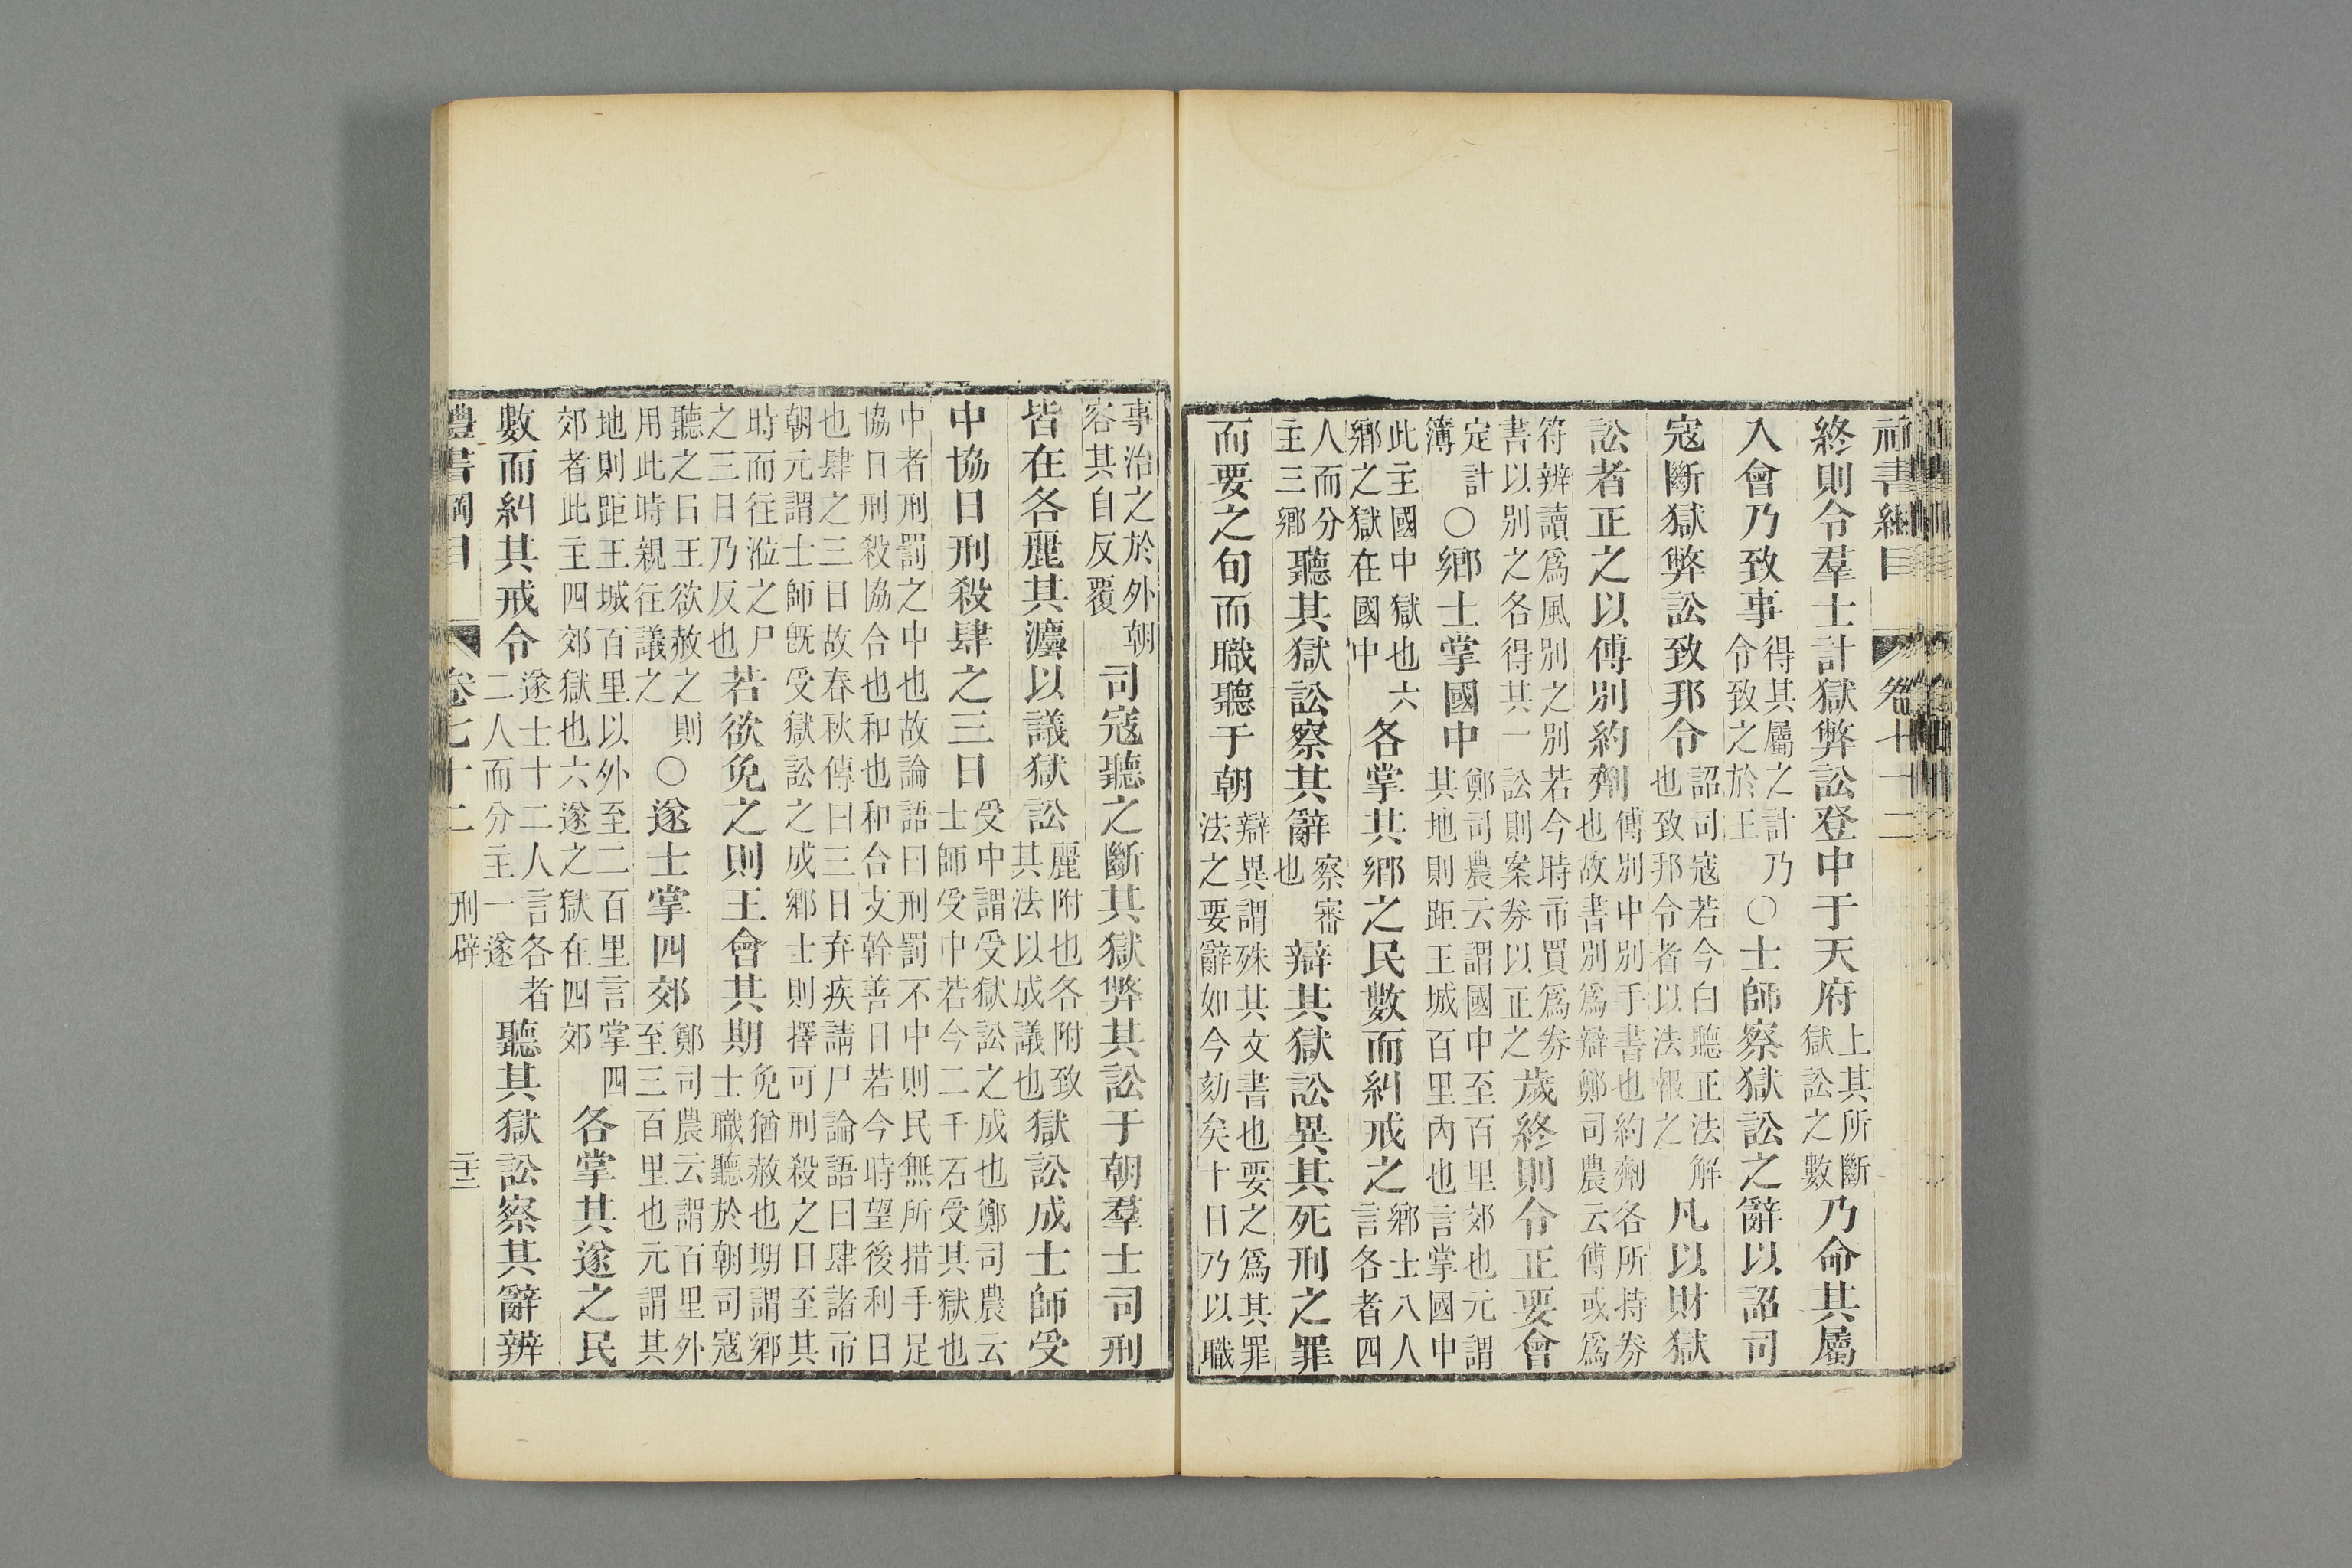 終則令羣士計獄弊訟登中于天府上其所斷獄訟之數乃命其屬
入會乃致事得其屬之計乃令致之於王○士師察獄訟之辭以詔司
寇斷獄弊訟致邦令詔司寇若今白聽正法解也致邦令者以法報之凡以財獄
訟者正之以傅別約劑傅別中別手書也約劑各所持券也故書別爲辯鄭司農云傅或爲
符辨讀爲風別之別若今時市買爲券書以別之各得其一訟則案券以正之歲終則令正要會
定計簿○鄉士掌國中鄭司農云謂國中至百里郊也元謂其地則距王城百里內也言掌國中
此主國中獄也六鄉之獄在國中各掌其鄉之民數而糾戒之鄉士八人言各者四
人而分主三鄉聽其獄訟察其辭察審也辯其獄訟異其死刑之罪
而要之旬而職聽于朝辯異謂殊其文書也要之爲其罪法之要辭如今劾矣十日乃以職
事治之於外朝容其自反覆司寇聽之斷其獄弊其訟于朝羣士司刑
皆在各麗其灋以議獄訟麗附也各附致其法以成議也獄訟成士師受
中協日刑殺肆之三日受中謂受獄訟之成也鄭司農云士師受中若今二千石受其獄也
中者刑罰之中也故論語曰刑罰不中則民無所措手足協日刑殺協合也和也和合支幹善日若今時望後利日
也肆之三日故春秋傳曰三日弃疾請尸論語曰肆諸市朝元謂士師旣受獄訟之成鄉士則擇可刑殺之日至其
時而往涖之尸之三日乃反也若欲免之則王會其期免猶赦也期謂鄉士職聽於朝司寇
聽之日王欲赦之則用此時親往議之○遂士掌四郊鄭司農云謂百里外至三百里也元謂其
地則距王城百里以外至二百里言掌四郊者此主四郊獄也六遂之獄在四郊各掌其遂之民
數而糾其戒令遂士十二人言各者二人而分主一遂聽其獄訟察其辭辨
禮書綱目 卷七十二 刑辟